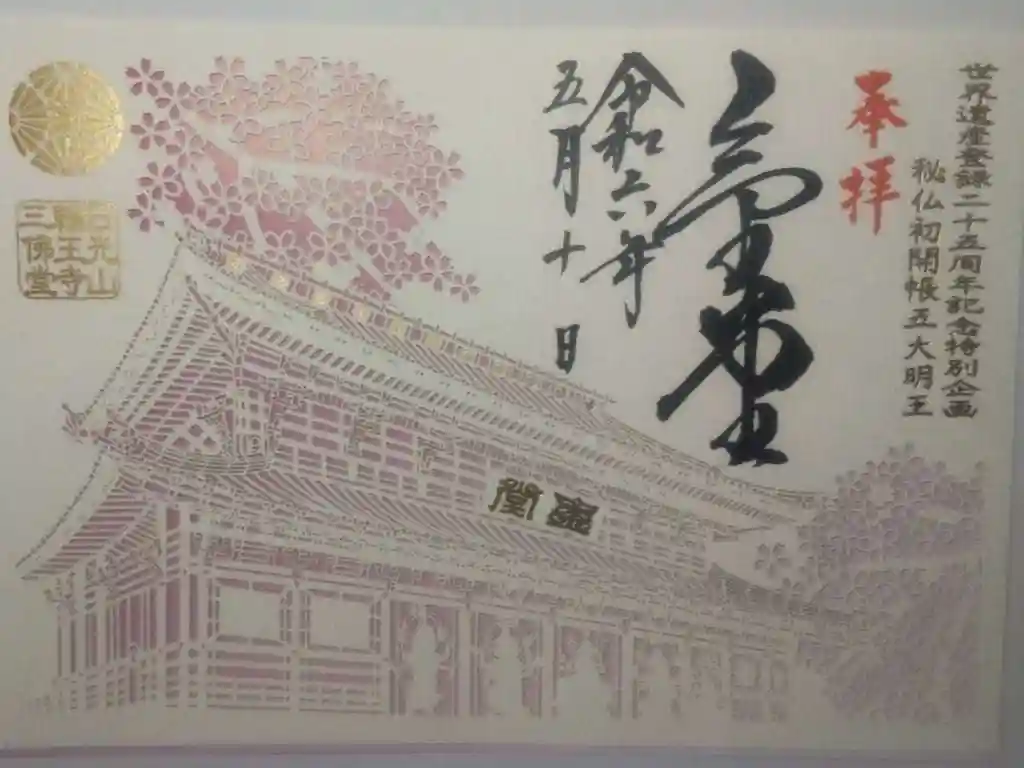 世界遺産登録二十五周年記念特別企画
秘仏初開帳五大明王
奉拝
令和六年
五月十日
日光山
輪王寺
三佛堂